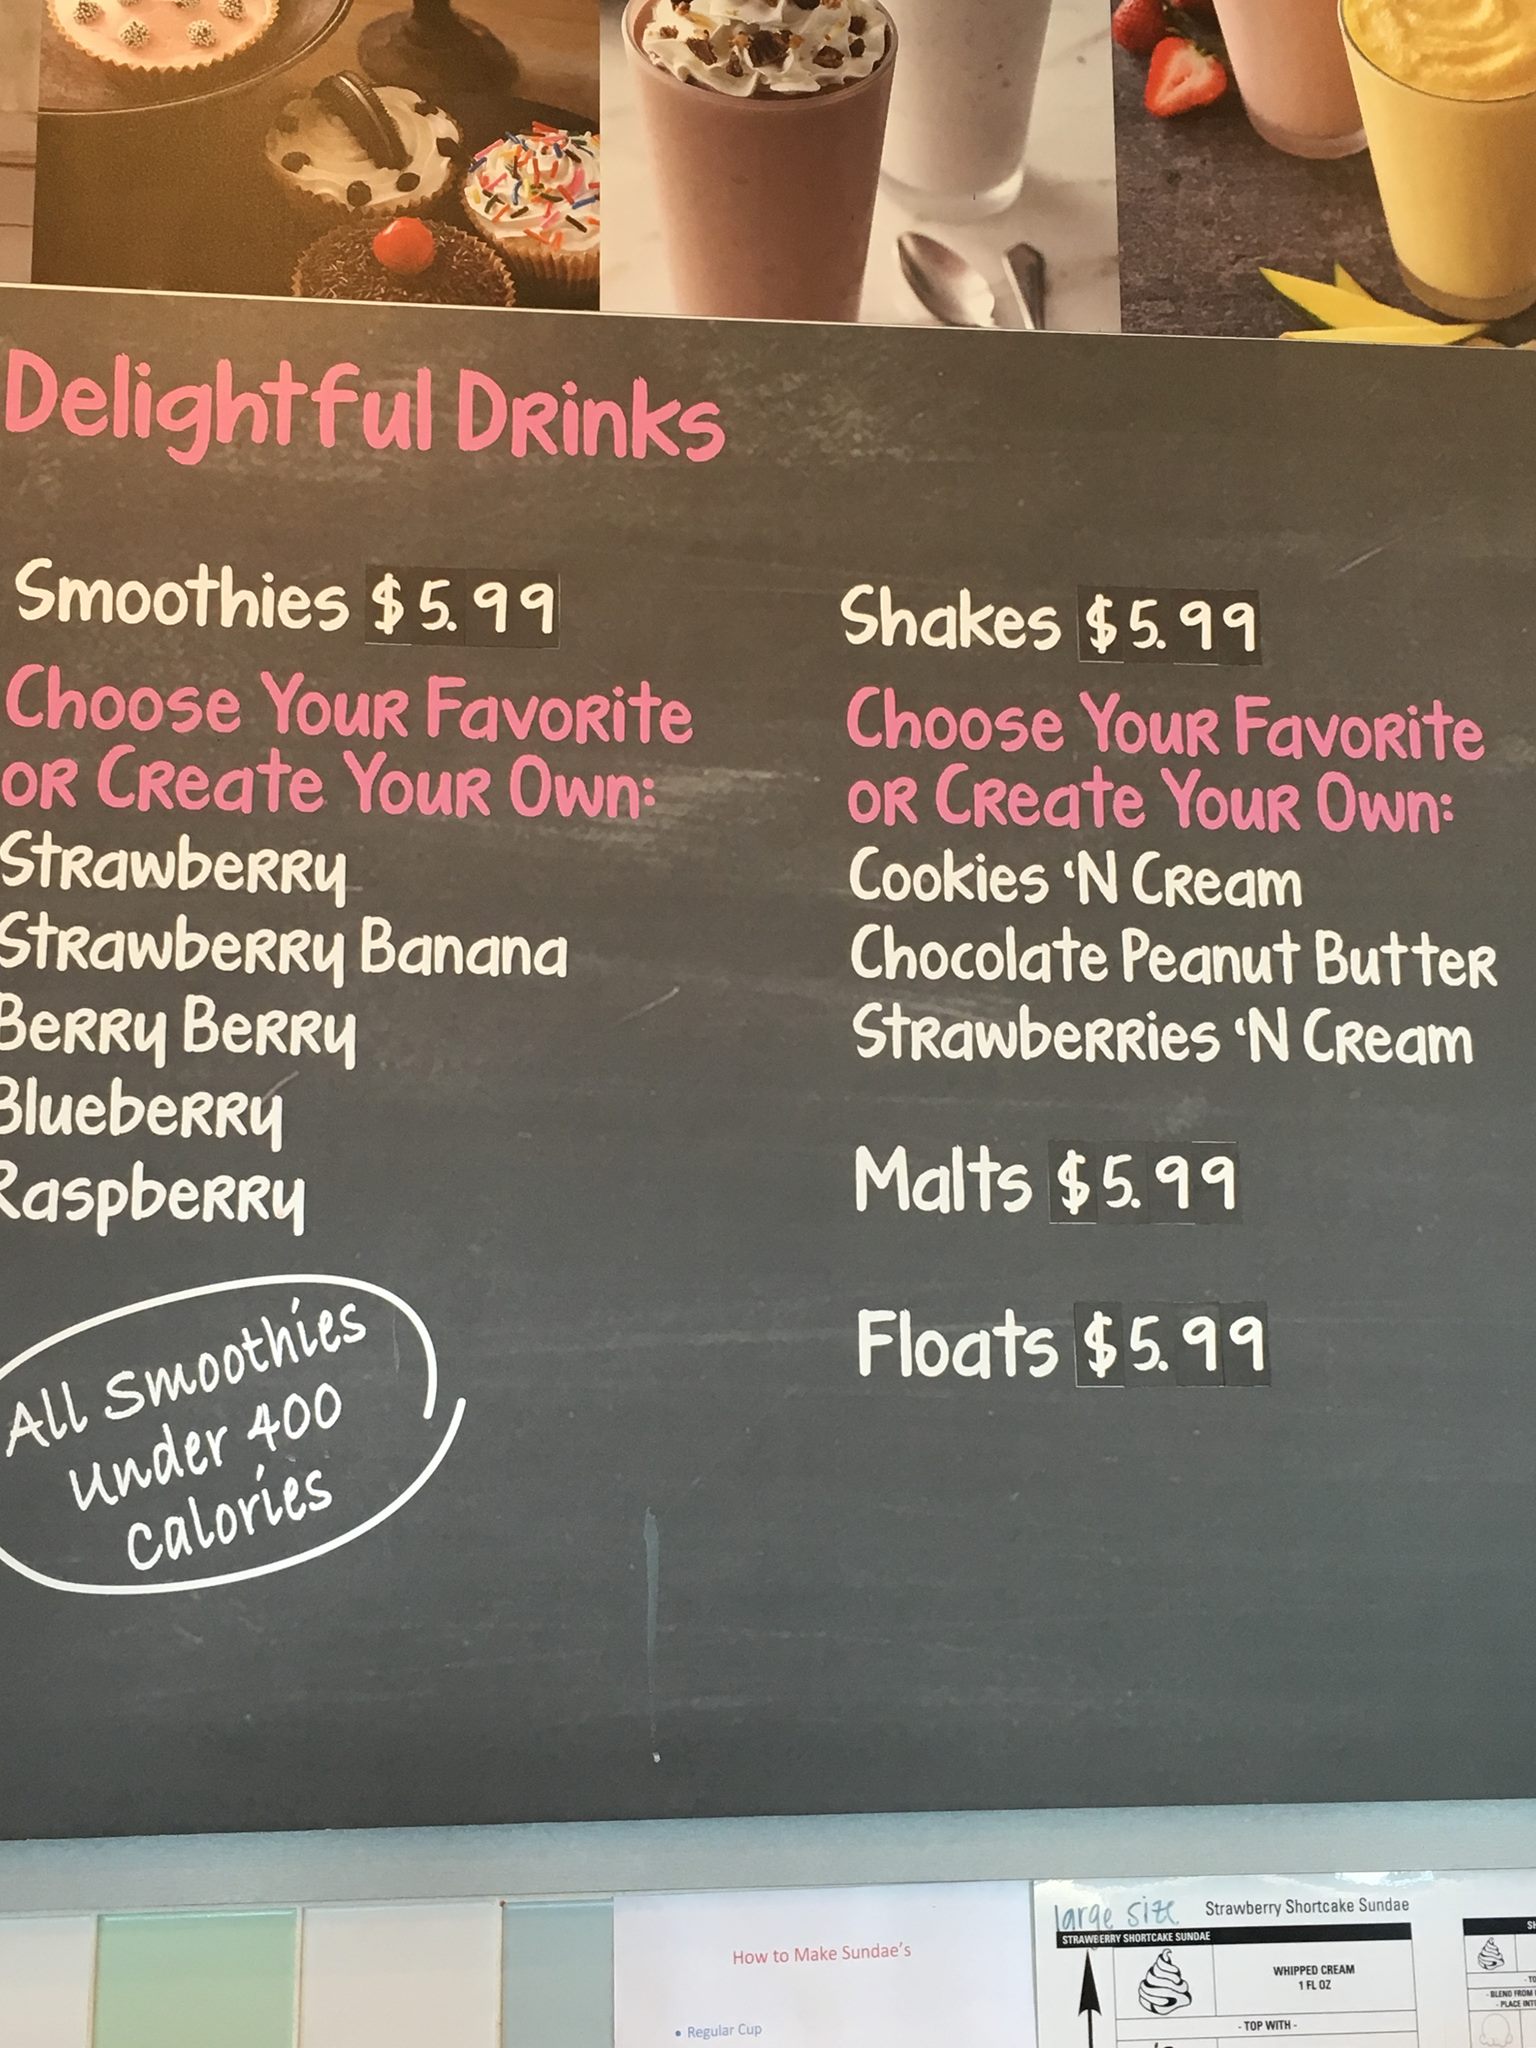 Delightful Drinks
Smoothies $5.99
Choose Your Favorite
or Create Your Own:
Strawberry
Strawberry Banana
Berry Berry
Blueberry
Raspberry
All Smoothies
under 400
calories
Shakes $5.99
Choose Your Favorite
or Create Your Own:
Cookies 'N Cream
Chocolate Peanut Butter
Strawberries 'N Cream
Malts $5.99
Floats $5.99
How to Make Sundae's
• Regular Cup
large size Strawberry Shortcake Sundae
STRAWBERRY SHORTCAKE SUNDAE
WHIPPED CREAM
1 FL OZ
- TOP WITH -
- BLEND FROM
- PLACE